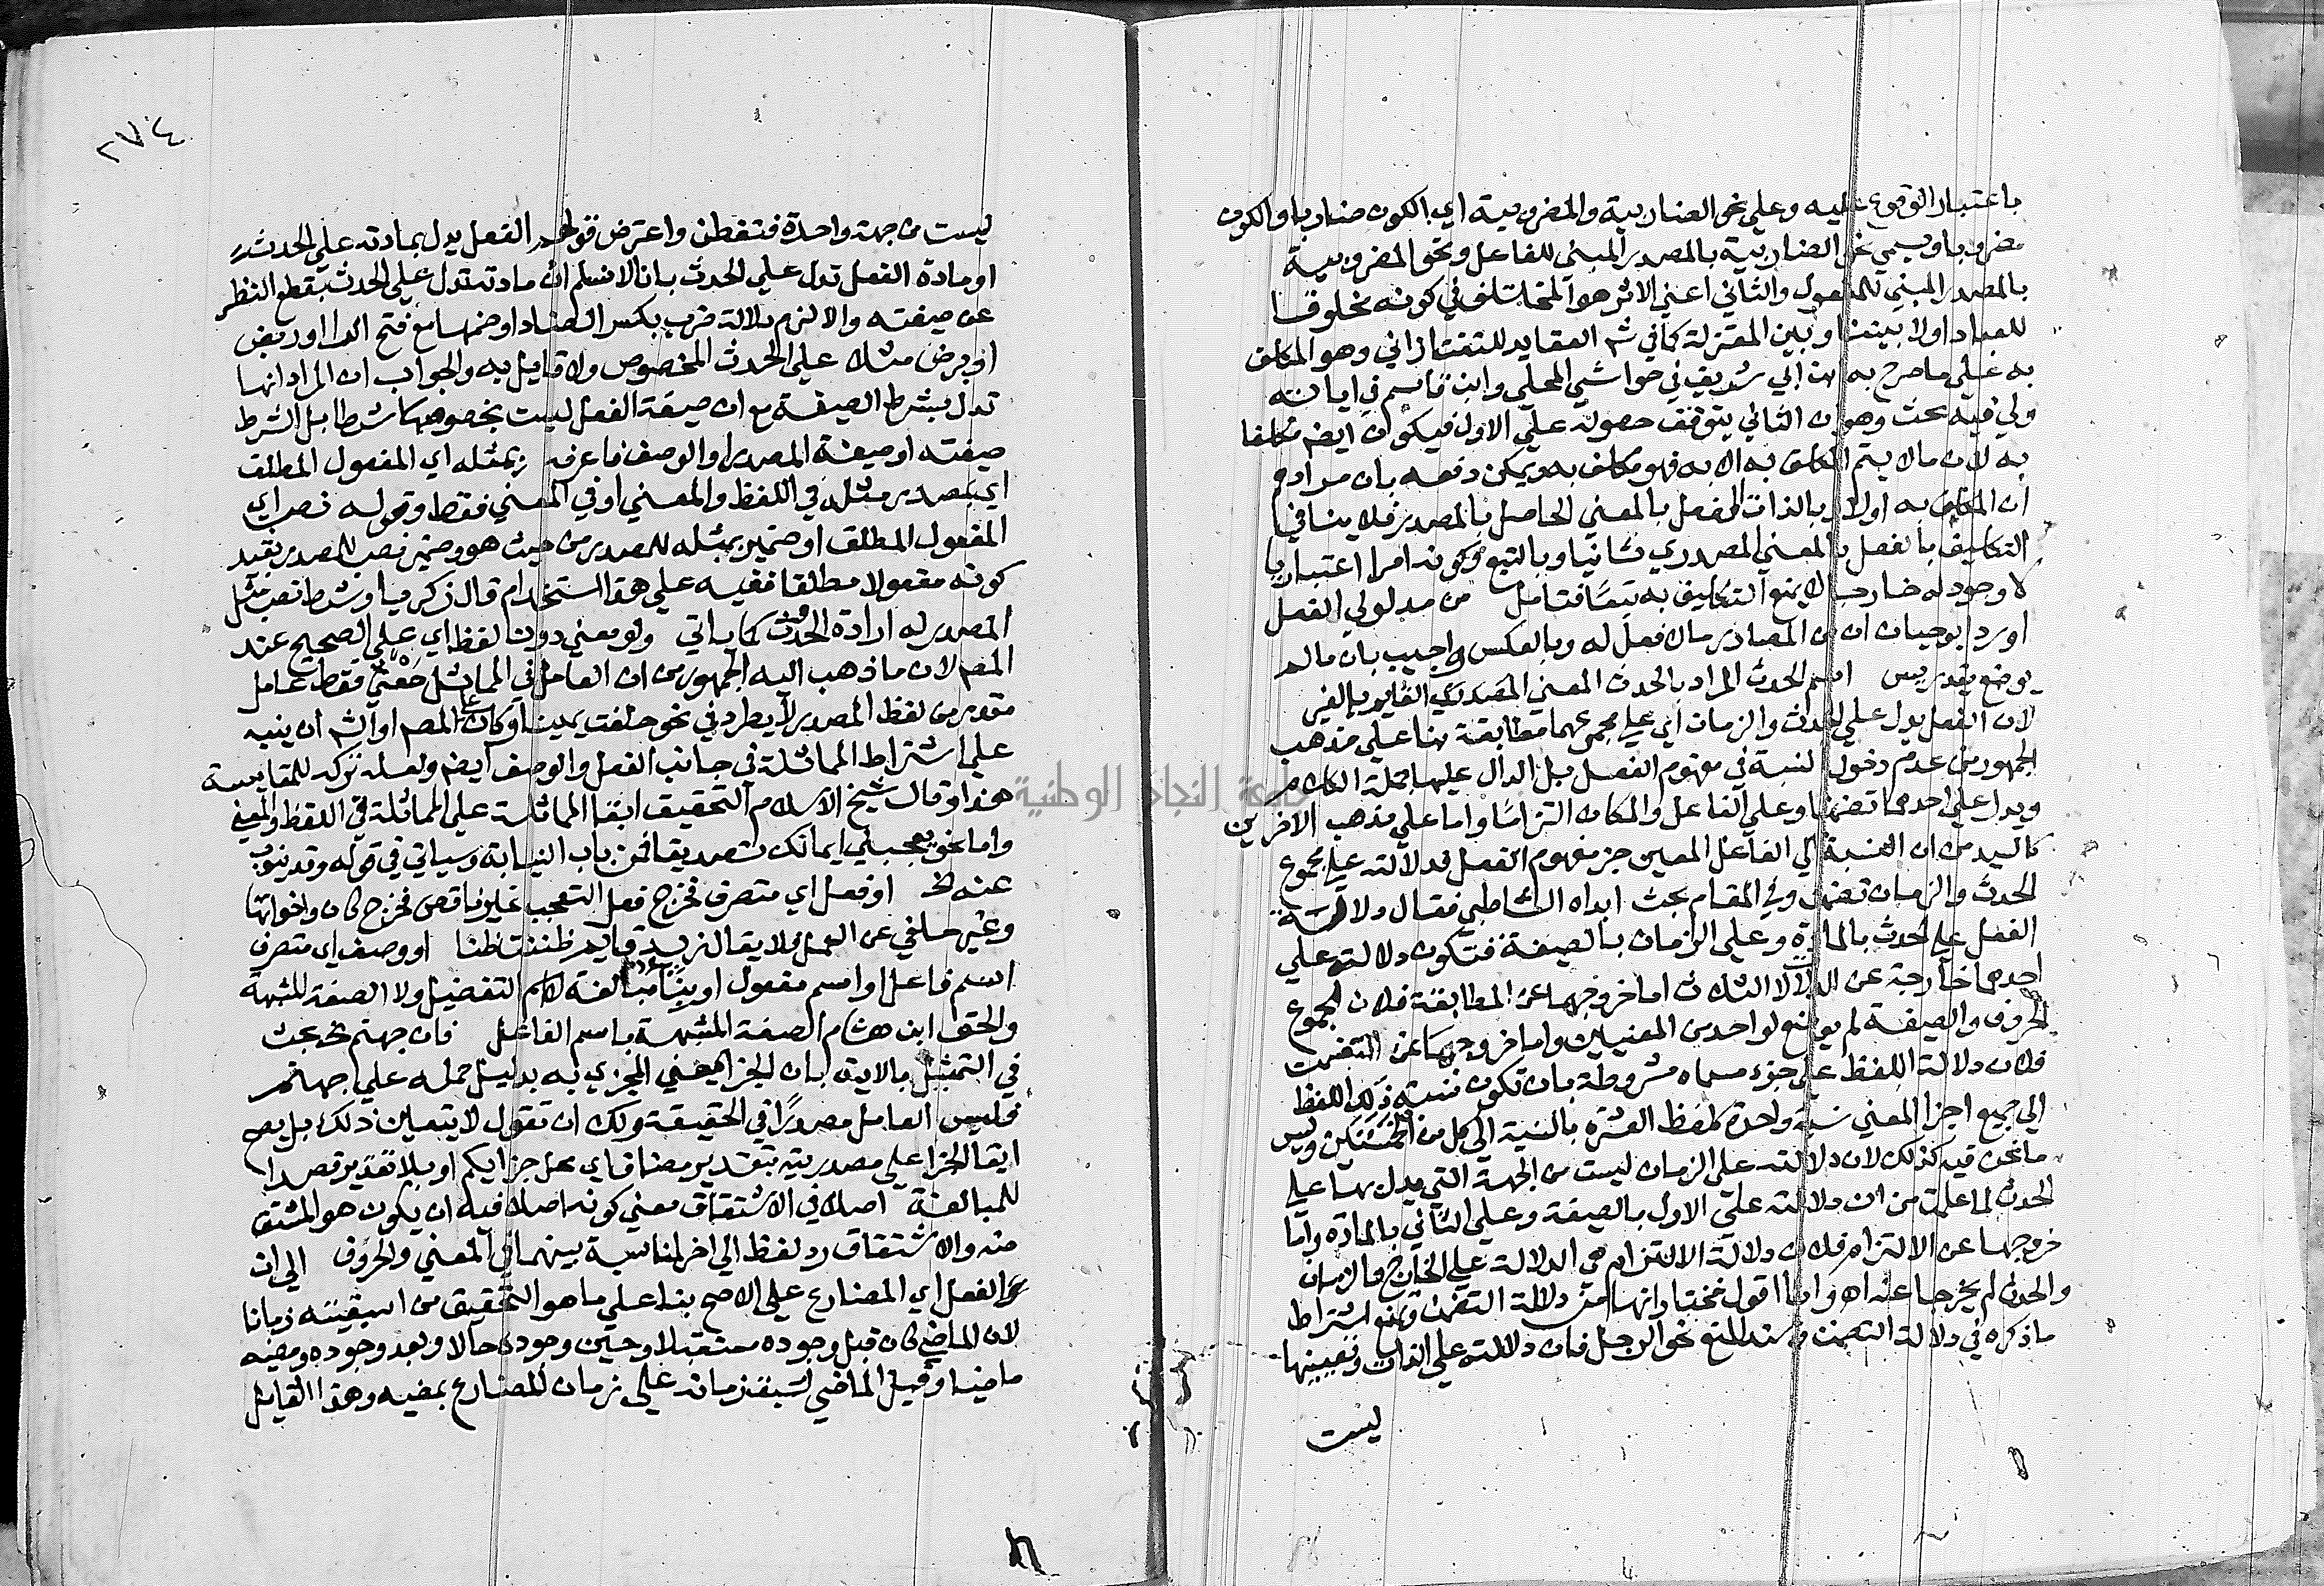 باعتبار الوقوع عليه وعلي نحو الضاربية والمضروبية اي الكون ضاربا والكون
مضروبا ويسمي نحو الضاربية بالمصدر المبني للفاعل ونحو المضروبية
بالمصدر المبني للمفعول والثاني اعني الاثر هو المختلف في كونه مخلوقا
للعباد اولا بيننا وبين المعتزلة كما في شر العقايد للتفتازاني وهو المكلف
به علي ما صرح به ابن ابي شريف في حواشي المحلي وابن قاسم في اياته
ولي فيه بحث وهو ان الثاني يتوقف حصوله علي الاول فيكون ايضم مكلفا
به لان ما لا يتم المكلف به الا به فهو مكلف به ويمكن دفعه بان مرادهم
ان المكلف به اولا وبالذات الفعل بالمعني الحاصل بالمصدر فلا ينافي
التكليف بالفعل بالمعني المصدري ثانيا وبالتبع وكونه امرا اعتباريا
لا وجود له خارجا لا يمنع التكليف به تبعا فتامل من مدلولي الفعل
اورد ابو حيان ان من المصادر ما لا فعل له وبالعكس واجيب بان ما لم
يوضع يقدر يس اسم الحدث المراد بالحدث المعني المصدري القايم بالغير
لان الفعل يدل علي الحدث والزمان اي علي مجموعهما مطابقة بنا علي مذهب
الجمهور من عدم دخول النسبة في مفهوم الفعل بل الدال عليها جملة الكلام
ويدل علي احدهما تضمنا وعلي الفاعل والمكان التزاما واما علي مذهب الاخرين
كالسيد من ان النسبة الي الفاعل المعين جز مفهوم الفعل فدلالته علي مجموع
الحدث والزمان تضمن وفي المقام بحث ابداه الشاطبي فقال دلالة
الفعل علي الحدث بالمادة وعلي الزمان بالصيغة فتكون دلالته علي
احدهما خارجة عن الدلالات الثلاث اما خروجها عن المطابقة فلان مجموع
الحروف والصيغة لم يوضع لواحد من المعنيين واما خروجها عن التضمن
فلان دلالة اللفظ علي جزء مسماه مشروطة بان تكون نسبة ذلك اللفظ
الي جميع اجزا المعني نسبة واحدة كلفظ العشرة بالنسبة الي كل من الخمستين وليس
ما نحن فيه كذلك لان دلالته علي الزمان ليست من الجهة التي يدل بها علي
الحدث لما علمت من ان دلالته علي الاول بالصيغة وعلي الثاني بالمادة واما
خروجها عن الالتزام فلان دلالة الالتزام هي الدلالة علي الخارج والزمان
والحدث لم يخرجا عنه اه وانا اقول نختار انها من دلالة التضمن ونمنع اشتراط
ما ذكره في دلالة التضمن وسند المنع نحو الرجل فان دلالته علي الذات وتعيينها
ليست
٢٧٤
ليست من جهة واحدة فتفطن واعترض قولهم الفعل يدل بمادته علي الحدث
او مادة الفعل تدل علي الحدث بانا لا نسلم ان مادته تدل علي الحدث بقطع النظر
عن صيغته والا لزم دلالة ضرب بكسر الضاد او ضمها مع فتح الرا او ربض
او برض مثلا علي الحدث المخصوص ولا قايل به والجواب ان المراد انها
تدل بشرط الصيغة مع ان صيغة الفعل ليست بخصوصها شرطا بل الشرط
صيغته او صيغة المصدر او الوصف فاعرفه بمثله اي المفعول المطلق
اي بمصدر مثله في اللفظ والمعني او في المعني فقط وقوله نصب اي
المفعول المطلق او ضمير بمثله للمصدر من حيث هو وضمير نصب للمصدر بقيد
كونه مفعولا مطلقا ففيه علي هذا استخدام قال زكريا وشرط نصب مثل
المصدر له ارادة الحدث كما ياتي ولو معني دون لفظ اي علي الصحيح عند
المصم لان ما ذهب اليه الجمهور من ان العامل في المماثل معني فقط عامل
مقدر من لفظ المصدر لا يطرد في نحو حلفت يمينا وكان علي المصم او الشر ان ينبه
علي اشتراط المماثلة في جانب الفعل والوصف ايضم ولعله تركه للمقايسة
هذا وقال شيخ الاسلام التحقيق ابقا المماثلة علي المماثلة في اللفظ والمعني
واما نحو يعجبني ايمانك تصديقا فمن باب النيابة وسياتي في قوله وقد ينوب
عنه الخ او فعل اي متصرف فخرج فعل التعجب غير ناقص فخرج كان واخواتها
وغير ملغي عن العمل فلا يقال زيد قايم ظننت ظنا او وصف اي متصرف
اسم فاعل او اسم مفعول او بنا مبالغة لا اسم التفضيل ولا الصفة المشبهة
والحق ابن هشام الصفة المشبهة باسم الفاعل فان جهنم الخ بحث
في التمثيل بالاية بان الجزا بمعني المجزي به بدليل حمله علي جهنم
فليس العامل مصدرا في الحقيقة ولك ان تقول لا يتعين ذلك بل يصح
ابقا الجزا علي مصدريته بتقدير مضاف اي محل جزايكم او بلا تقدير قصدا
للمبالغة اصلا في الاشتقاق معني كونه اصلا فيه ان يكون هو المشتق
منه والاشتقاق رد لفظ الي اخر لمناسبة بينهما في المعني والحروف الي ان
الفعل اي المضارع علي الاصح بنا علي ما هو التحقيق من اسبقيته زمانا
لان الماضي كان قبل وجوده مستقبلا وحين وجوده حالا وبعد وجوده ومضيه
ماضيا وقيل الماضي لسبق زمانه علي زمان المضارع بمضيه وهذا القايل
جامعة النجاح الوطنية